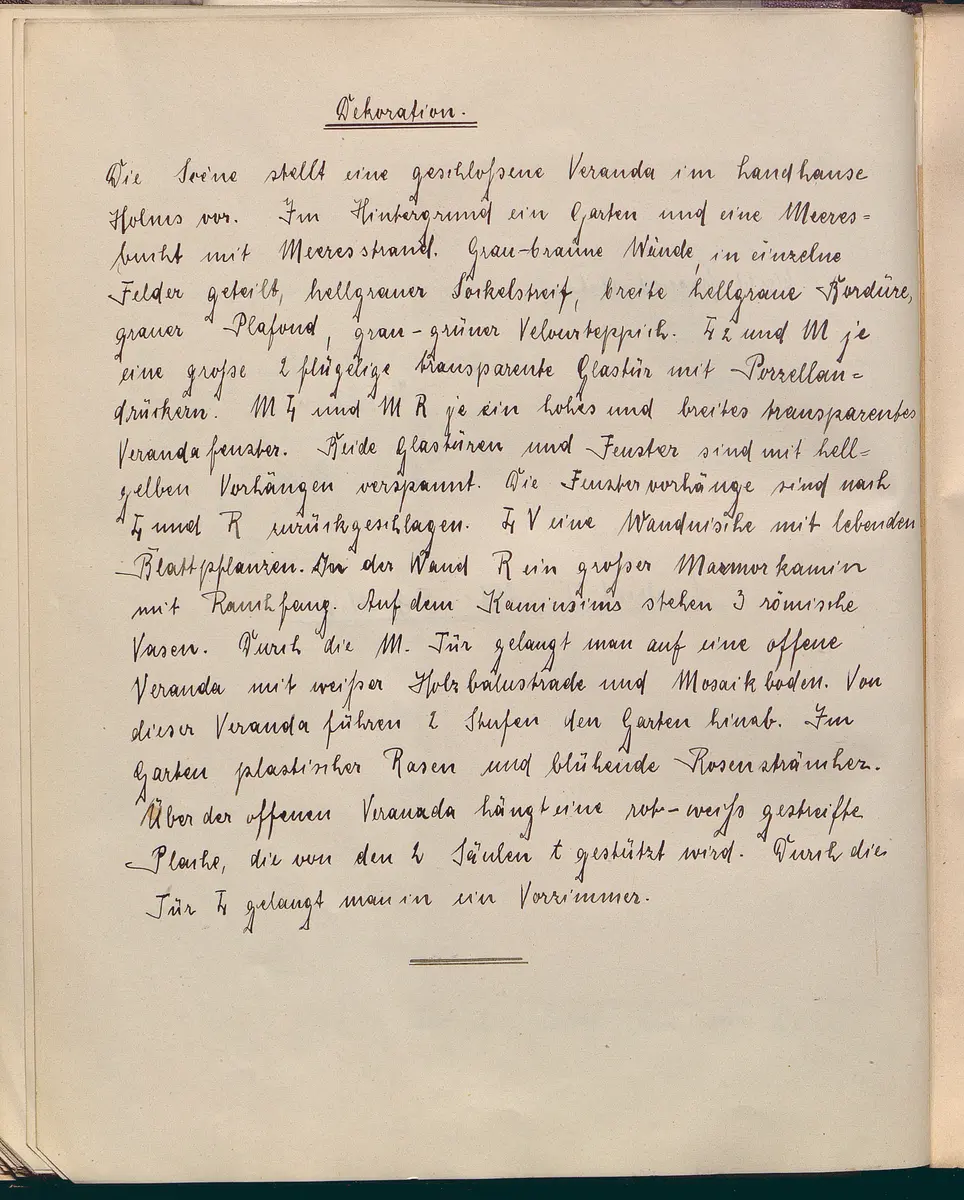 Dekoration.
Die Scène stellt eine geschloßene Veranda im Landhause
Holms vor. Im Hintergrund ein Garten und eine Meeres=
bucht mit Meeresstrand. Grau-braune Wände, in einzelne
Felder geteilt, hellgrauer Sockelstreif, breite hellgraue Bordüre,
grauer Plafond, grau-grüner Velourteppich. L 2 und M je
eine große 2 flügelige transparente Glastür mit Porzellan=
drückern. M L und M R je ein hohes und breites transparentes
Verandafenster. Beide Glastüren und Fenster sind mit hell=
gelben Vorhängen verspannt. Die Fenstervorhänge sind nach
L und R zurückgeschlagen. L V eine Wandnische mit lebenden
Blattpflanzen. In der Wand R ein großer Marmorkamin
mit Rauchfang. Auf dem Kaminsims stehen 3 römische
Vasen. Durch die M. Tür gelangt man auf eine offene
Veranda mit weißer Holzbalustrade und Mosaikboden. Von
dieser Veranda führen 2 Stufen den Garten hinab. Im
Garten plastischer Rasen und blühende Rosensträucher.
Über der offenen Veranada hängt eine rot-weiß gestreifte
Plache, die von den 2 Säulen t gestützt wird. Durch die
Tür L gelangt man in ein Vorzimmer.